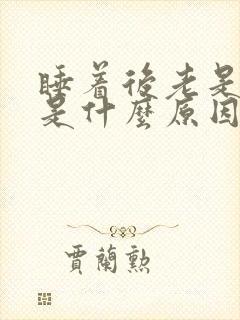 睡着後老是
是什麼原因
賈蘭勲